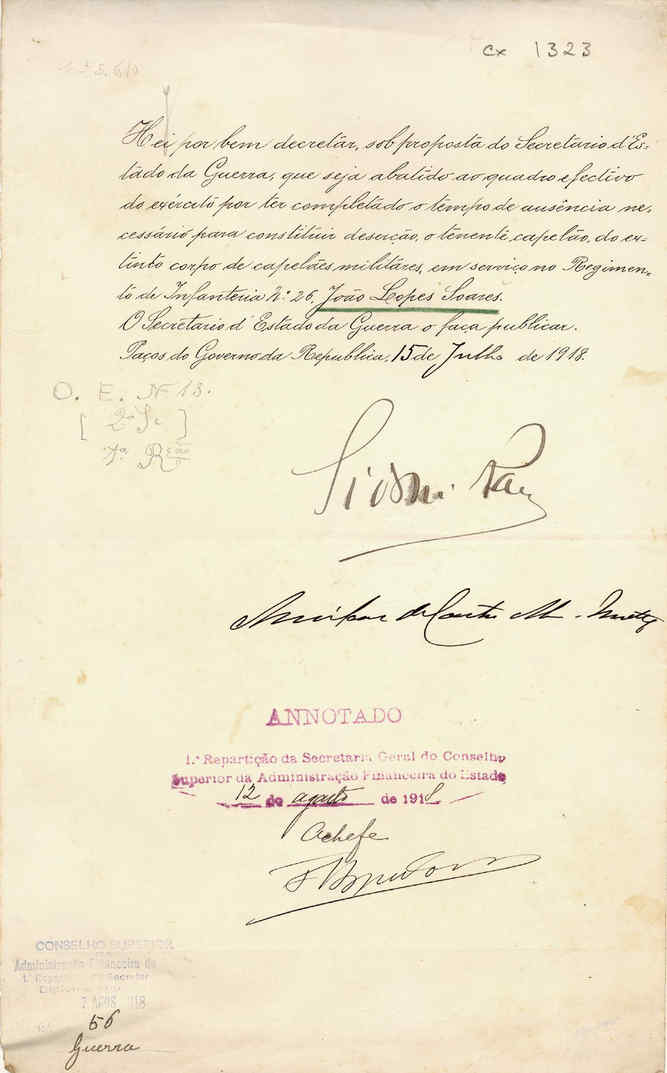 cx 1323
Hei por bem decretar, sob proposta do Secretario d'Es-
tado da Guerra, que seja abatido ao quadro efectivo
do exército por ter completado o tempo de ausência ne-
cessário para constituir deserção, o tenente capelão, do ex-
tinto corpo de capelães militares, em serviço no Regimen-
to de Infanteria N.º 26, João Lopes Soares.
O Secretario d'Estado da Guerra o faça publicar.
Paços do Governo da Republica, 15 de Julho de 1918.
O. E. Nº 13.
[ 2ª S. ]
Sidonio Paes
ANNOTADO
1.ª Repartição da Secretaria Geral do Conselho
Superior da Administração Financeira do Estado
12 de agosto de 1918
O chefe
CONSELHO SUPERIOR
Administração Financeira do
7 AGOS 918
56
Guerra